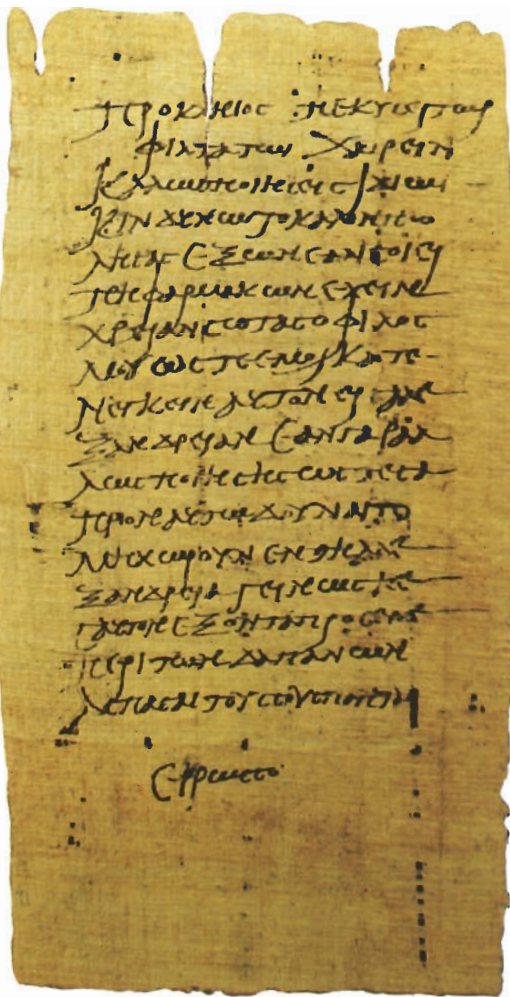 Προκλήιος Πεκύσει τωι
φιλτάτωι χαίρειν
καλως ποιήσεις ιδίωι
κινδύνωι το καλον πω
λήσας εξ ων εαν σοι εί
πη φαρμάκων έχειν
χρείαν Σώτας ο φίλος
μου ώστε εμοι κατε
νεγκειν αυτον εις Αλε
ξανδρειαν εαν γαρ αλ
λως ποιήσης ώστε σα
προν αυτωι δουναι το
μη χωρουν εν τη Αλε
ξανδρεία γείνωσκε
σαυτον έξοντα προς εμε
περι των δαπανων
άσπασαι τους σους πάντας
έρρωσο